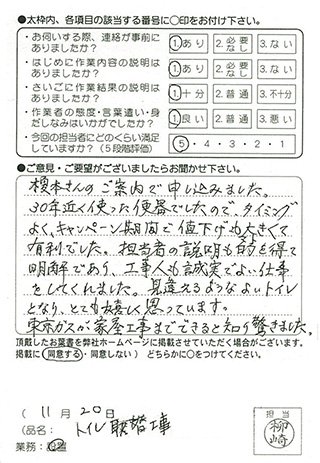 ●太枠内、各項目の該当する番号に○印をお付け下さい。
・お伺いする際、連絡が事前に
ありましたか？
1.あり 2.必要なし 3.ない
・はじめに作業内容の説明は
ありましたか？
1.あり 2.必要なし 3.ない
・さいごに作業結果の説明は
ありましたか？
1.十分 2.普通 3.不十分
・作業者の態度・言葉遣い・身
だしなみはいかがでしたか？
1.良い 2.普通 3.悪い
・今回の担当者にどのくらい満足
していますか？（５段階評価）
5・4・3・2・1
●ご意見・ご要望がございましたらお聞かせ下さい。
榎本さんのご案内で申し込みました。
30年近く使った便器でしたので、タイミング
よく、キャンペーン期間で値下げも大きくて
有利でした。担当者の説明も的を得て
明解であり、工事人も誠実でよい仕事
をしてくれました。見違えるようなよいトイレ
となり、とても嬉しく思っています。
東京ガスが家屋工事までできると知り驚きました。
頂戴したお葉書を弊社ホームページに掲載させていただく場合がございます。
掲載に（同意する・同意しない） どちらかに○をつけてください。
（ 11月 20日
（品名： トイレ取替工事
業務：
担当
柳崎